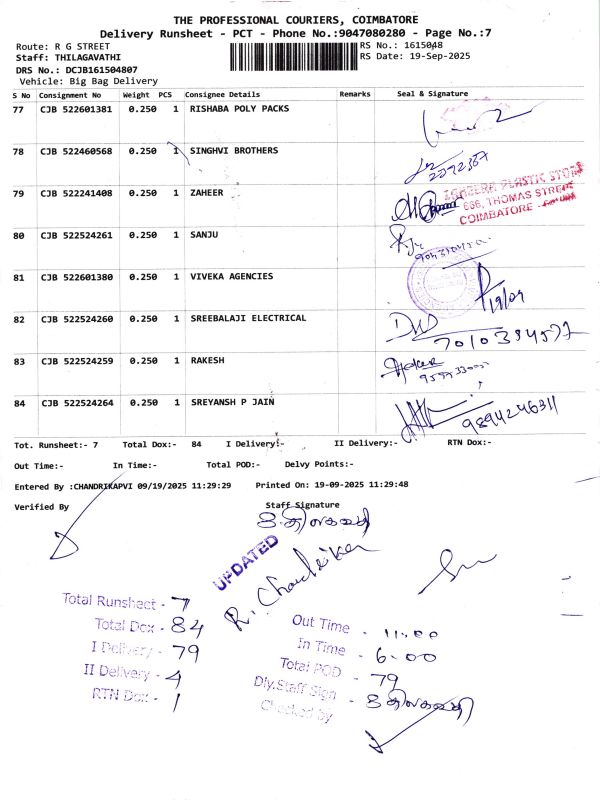 THE PROFESSIONAL COURIERS, COIMBATORE
Delivery Runsheet - PCT - Phone No.:9047080280 - Page No.:7
Route: R G STREET
RS No.: 1615048
Staff: THILAGAVATHI
RS Date: 19-Sep-2025
DRS No.: DCJB161504807
Vehicle: Big Bag Delivery
S No Consignment No Weight PCS Consignee Details Remarks Seal & Signature
77 CJB 522601381 0.250 1 RISHABA POLY PACKS
78 CJB 522460568 0.250 1 SINGHVI BROTHERS
79 CJB 522241408 0.250 1 ZAHEER
PLASTIC STORE
686, THOMAS STREET
COIMBATORE
80 CJB 522524261 0.250 1 SANJU
81 CJB 522601380 0.250 1 VIVEKA AGENCIES
19/09
82 CJB 522524260 0.250 1 SREEBALAJI ELECTRICAL
7010394577
83 CJB 522524259 0.250 1 RAKESH
84 CJB 522524264 0.250 1 SREYANSH P JAIN
9894246311
Tot. Runsheet:- 7 Total Dox:- 84 I Delivery:- II Delivery:- RTN Dox:-
Out Time:- In Time:- Total POD:- Delvy Points:-
Entered By :CHANDRIKAPVI 09/19/2025 11:29:29 Printed On: 19-09-2025 11:29:48
Verified By Staff Signature
UPDATED
R. Chandrika
Total Runsheet - 7
Total Dox - 84
I Delivery - 79
II Delivery - 4
RTN Dox - 1
Out Time - 11.00
In Time - 6.00
Total POD - 79
Dly.Staff Sign -
Checked by